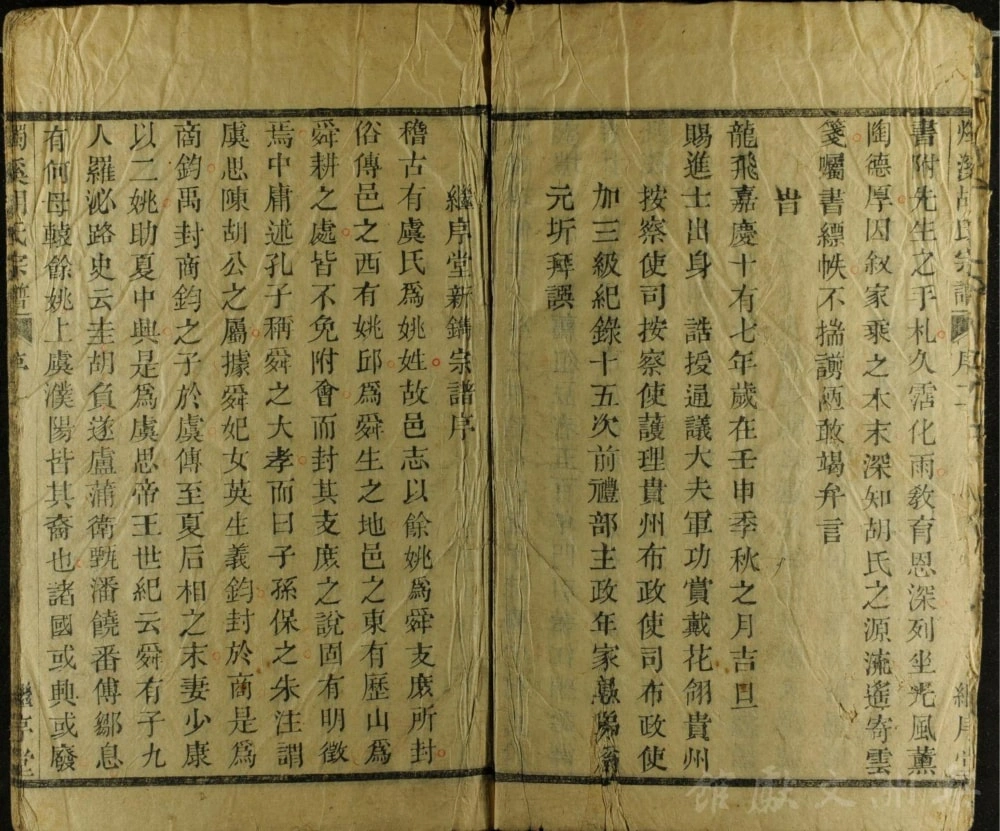 燭溪胡氏宗譜 序二 繼序堂
書附先生之手札久霑化雨教育恩深列坐光風薰
陶德厚因敘家乘之本末深知胡氏之源流遙寄雲
箋囑書縹帙不揣謭陋敢竭弁言
旹
龍飛嘉慶十有七年歲在壬申季秋之月吉旦
賜進士出身 誥授通議大夫軍功賞戴花翎貴州
按察使司按察使護理貴州布政使司布政使
加三級紀錄十五次前禮部主政年家愚
元圻拜譔
繼序堂新鐫宗譜序
稽古有虞氏爲姚姓故邑志以餘姚爲舜支庶所封
俗傳邑之西有姚邱爲舜生之地邑之東有歷山爲
舜耕之處皆不免附會而封其支庶之說固有明徵
焉中庸述孔子稱舜之大孝而曰子孫保之朱注謂
虞思陳胡公之屬據舜妃女英生義鈞封於商是爲
商鈞禹封商鈞之子於虞傳至夏后相之末妻少康
以二姚助夏中興是爲虞思帝王世紀云舜有子九
人羅泌路史云圭胡負遂盧蒲衛甄潘饒番傅鄒息
有何母轅餘姚上虞濮陽皆其裔也諸國或興或廢
燭溪胡氏宗譜 序 繼序堂
文獻館